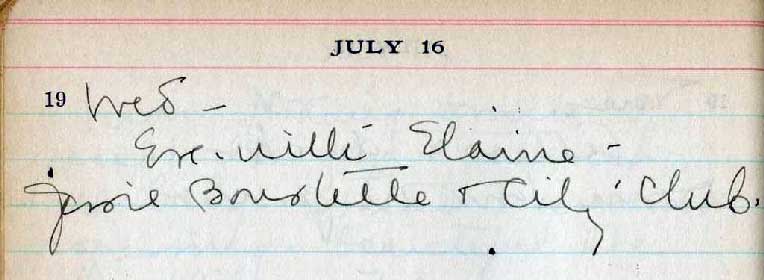 JULY 16
19 Wed -
Eve. with Elaine -
Jessie & City Club.